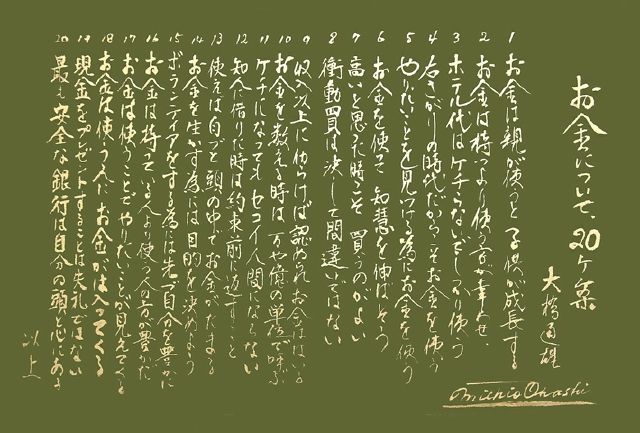 お金について、20ヶ条
大橋道雄
Michio Ohashi
1 お金は親が使うと子供が成長する
2 お金は持つより使う方が幸わせ
3 ホテル代はケチらないでしっかり使う
4 右さがりの時代だからこそお金を使う
5 やりたいことを見つける為にお金を使う
6 お金を使って知慧を伸ばそう
7 高いと思った時こそ買うのがよい
8 衝動買は決して間違いではない
9 収入以上に働らけば認められお金ははいる
10 お金を数える時は万や億の単位で呼ぶ
11 ケチになってもセコイ人間にならない
12 知人に借りた時は約束前に返すこと
13 使えば自づと頭の中でお金がたまる
14 お金を生かす為には目的を決めよう
15 ボランティアをする為には先づ自分を豊かに
16 お金は持っている人より使う人の方が豊かだ
17 お金は使うことでやりたいことが見えてくる
18 お金は使う人にお金が入ってくる
19 現金をプレゼントすることは失礼ではない
20 最も安全な銀行は自分の頭と心にある
以上